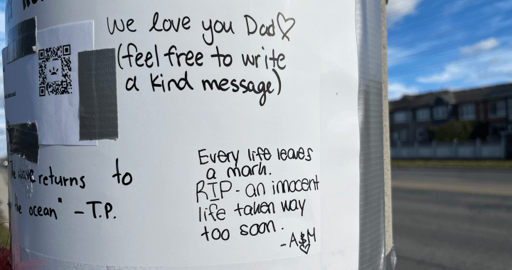 We love you Dad♡
(feel free to write
a kind message)
wave returns to
the ocean" -T.P.
Every life leaves
a mark.
RIP - an innocent
life taken way
too soon.
-A&M